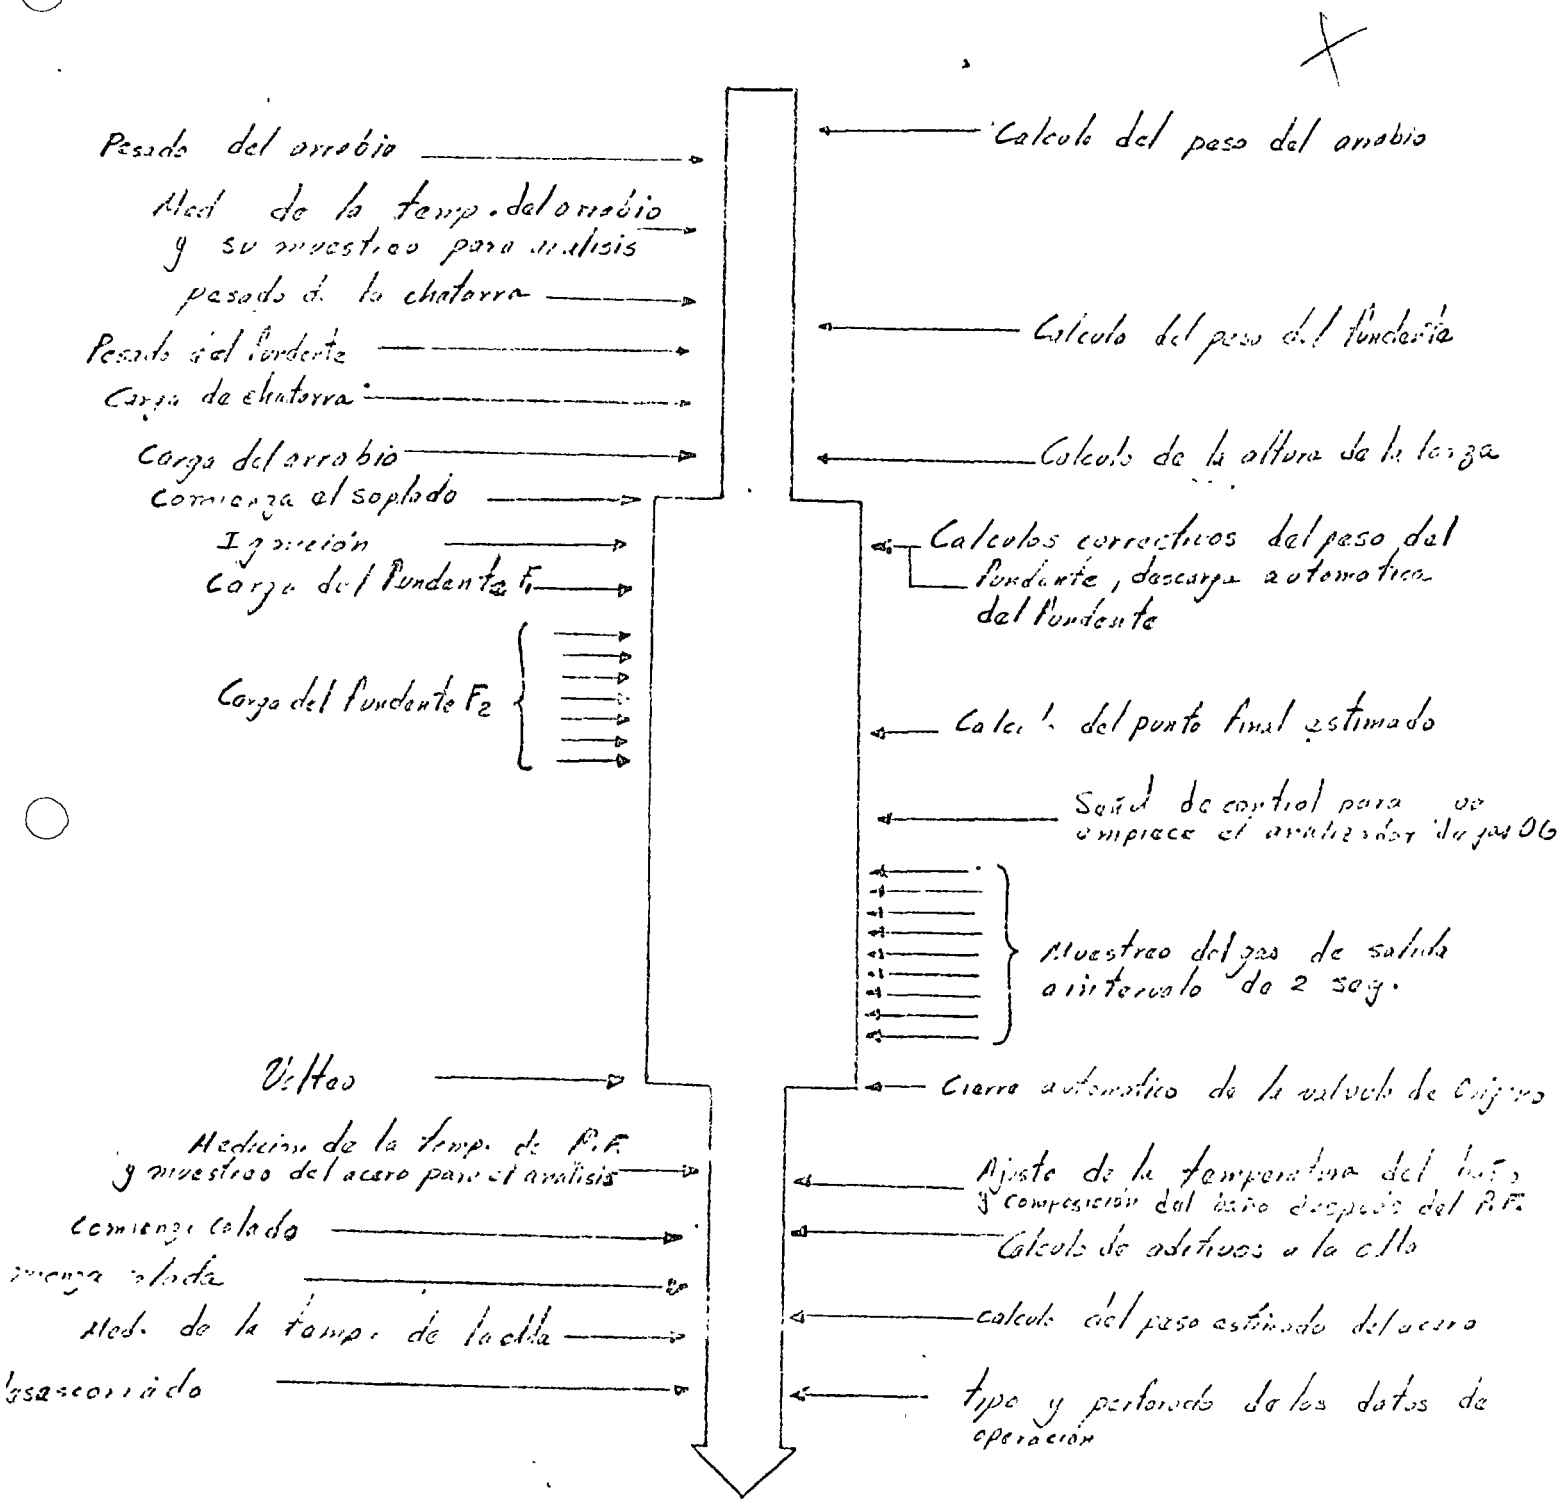 Pesado del arrabio
Med de la temp. del arrabio
y su muestreo para analisis
pesado de la chatarra
Pesado del fundente
Carga de chatarra
Carga del arrabio
Comienza el soplado
Ignición
Carga del fundente F1
Carga del fundente F2
Volteo
Medición de la temp. de P.F.
y muestreo del acero para el analisis
Comienza colado
colada
Med. de la temp. de la olla
Calculo del peso del arrabio
Calculo del peso del fundente
Calculo de la altura de la lanza
Calculos correctivos del peso del
fundente, descarga automatica
del fundente
del punto final estimado
Señal de control para
empiece el analizador de gas OG
Muestreo del gas de salida
a intervalo de 2 seg.
Cierre automatico de la valvula de Oxigeno
Ajuste de la temperatura del baño
y composición del baño después del P.F.
Calculo de aditivos a la olla
calculo del peso estimado del acero
tipo y perforado de los datos de
operación